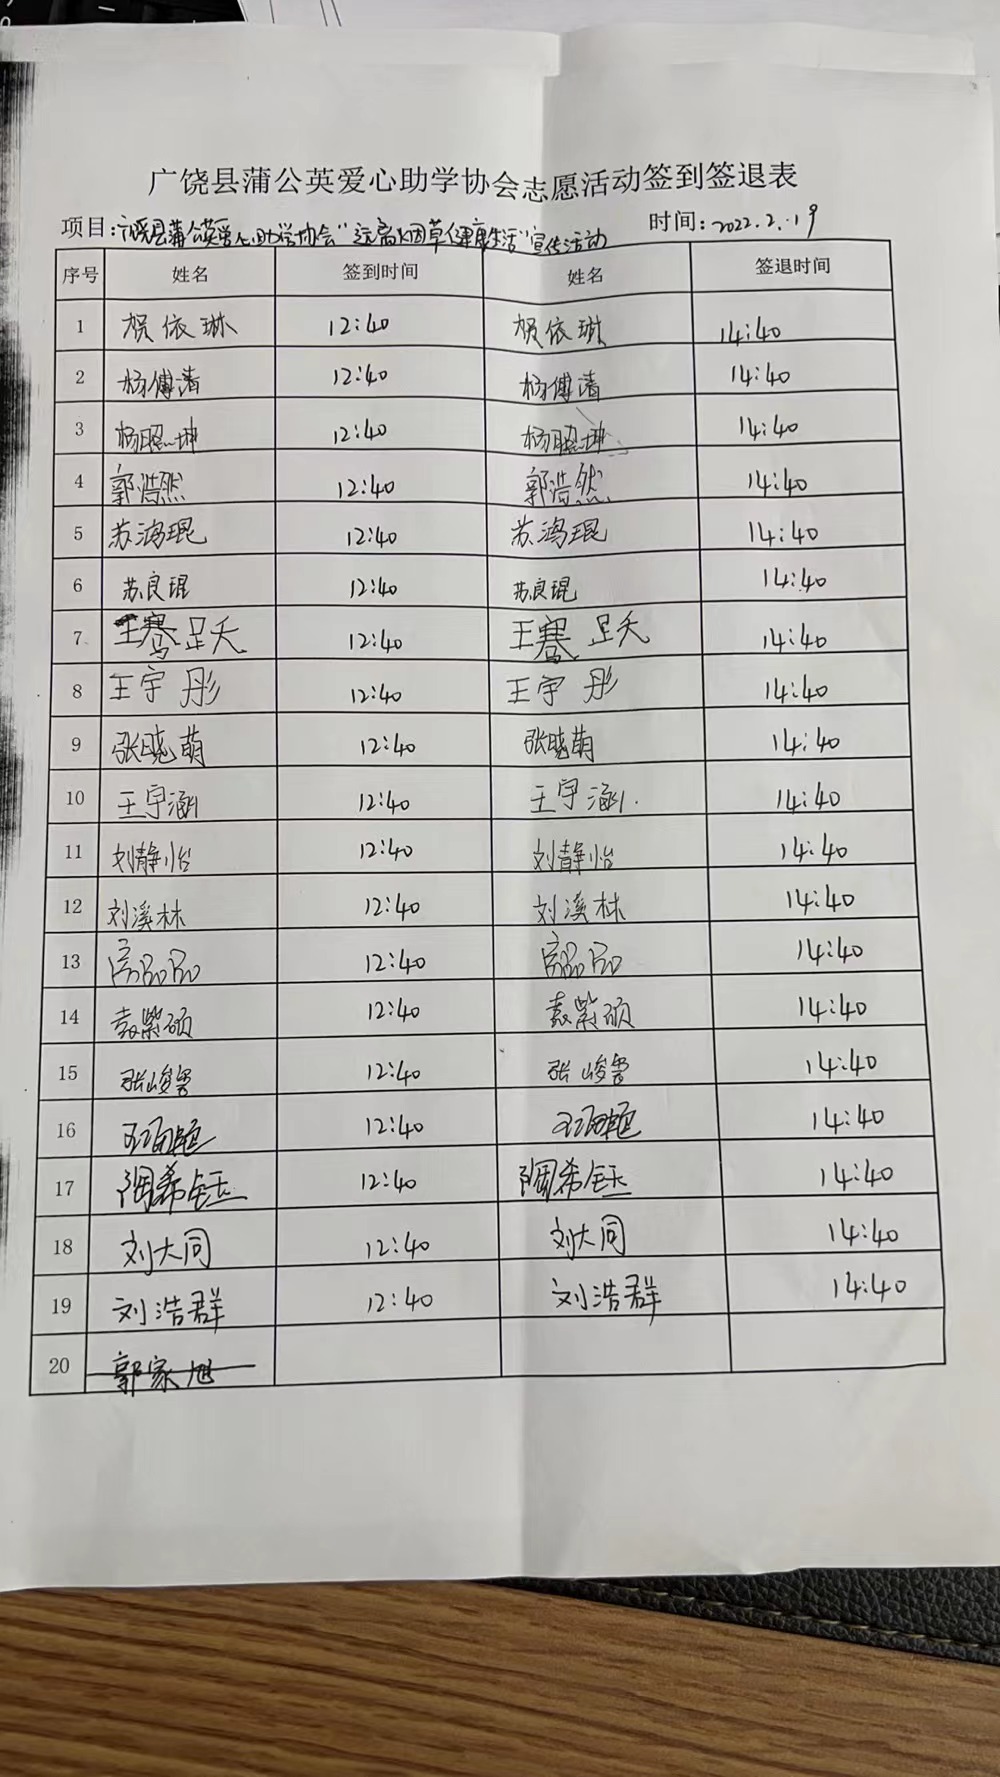 广饶县蒲公英爱心助学协会志愿活动签到签退表
项目:广饶县蒲公英爱心助学协会“远离烟草健康生活”宣传活动 时间:2022.2.19
序号 姓名 签到时间 姓名 签退时间
1 贺依琳 12:40 贺依琳 14:40
2 杨傅清 12:40 杨傅清 14:40
3 杨昭坤 12:40 杨昭坤 14:40
4 郭浩然 12:40 郭浩然 14:40
5 苏鸿琨 12:40 苏鸿琨 14:40
6 苏良琨 12:40 苏良琨 14:40
7 王骞 12:40 王骞 14:40
8 王宇彤 12:40 王宇彤 14:40
9 张晓萌 12:40 张晓萌 14:40
10 王宇涵 12:40 王宇涵. 14:40
11 刘静怡 12:40 刘静怡 14:40
12 刘溪林 12:40 刘溪林 14:40
13 12:40 14:40
14 袁紫硕 12:40 袁紫硕 14:40
15 张峻鲁 12:40 张峻鲁 14:40
16 12:40 14:40
17 陶希钰 12:40 陶希钰 14:40
18 刘大同 12:40 刘大同 14:40
19 刘浩群 12:40 刘浩群 14:40
20 郭家旭